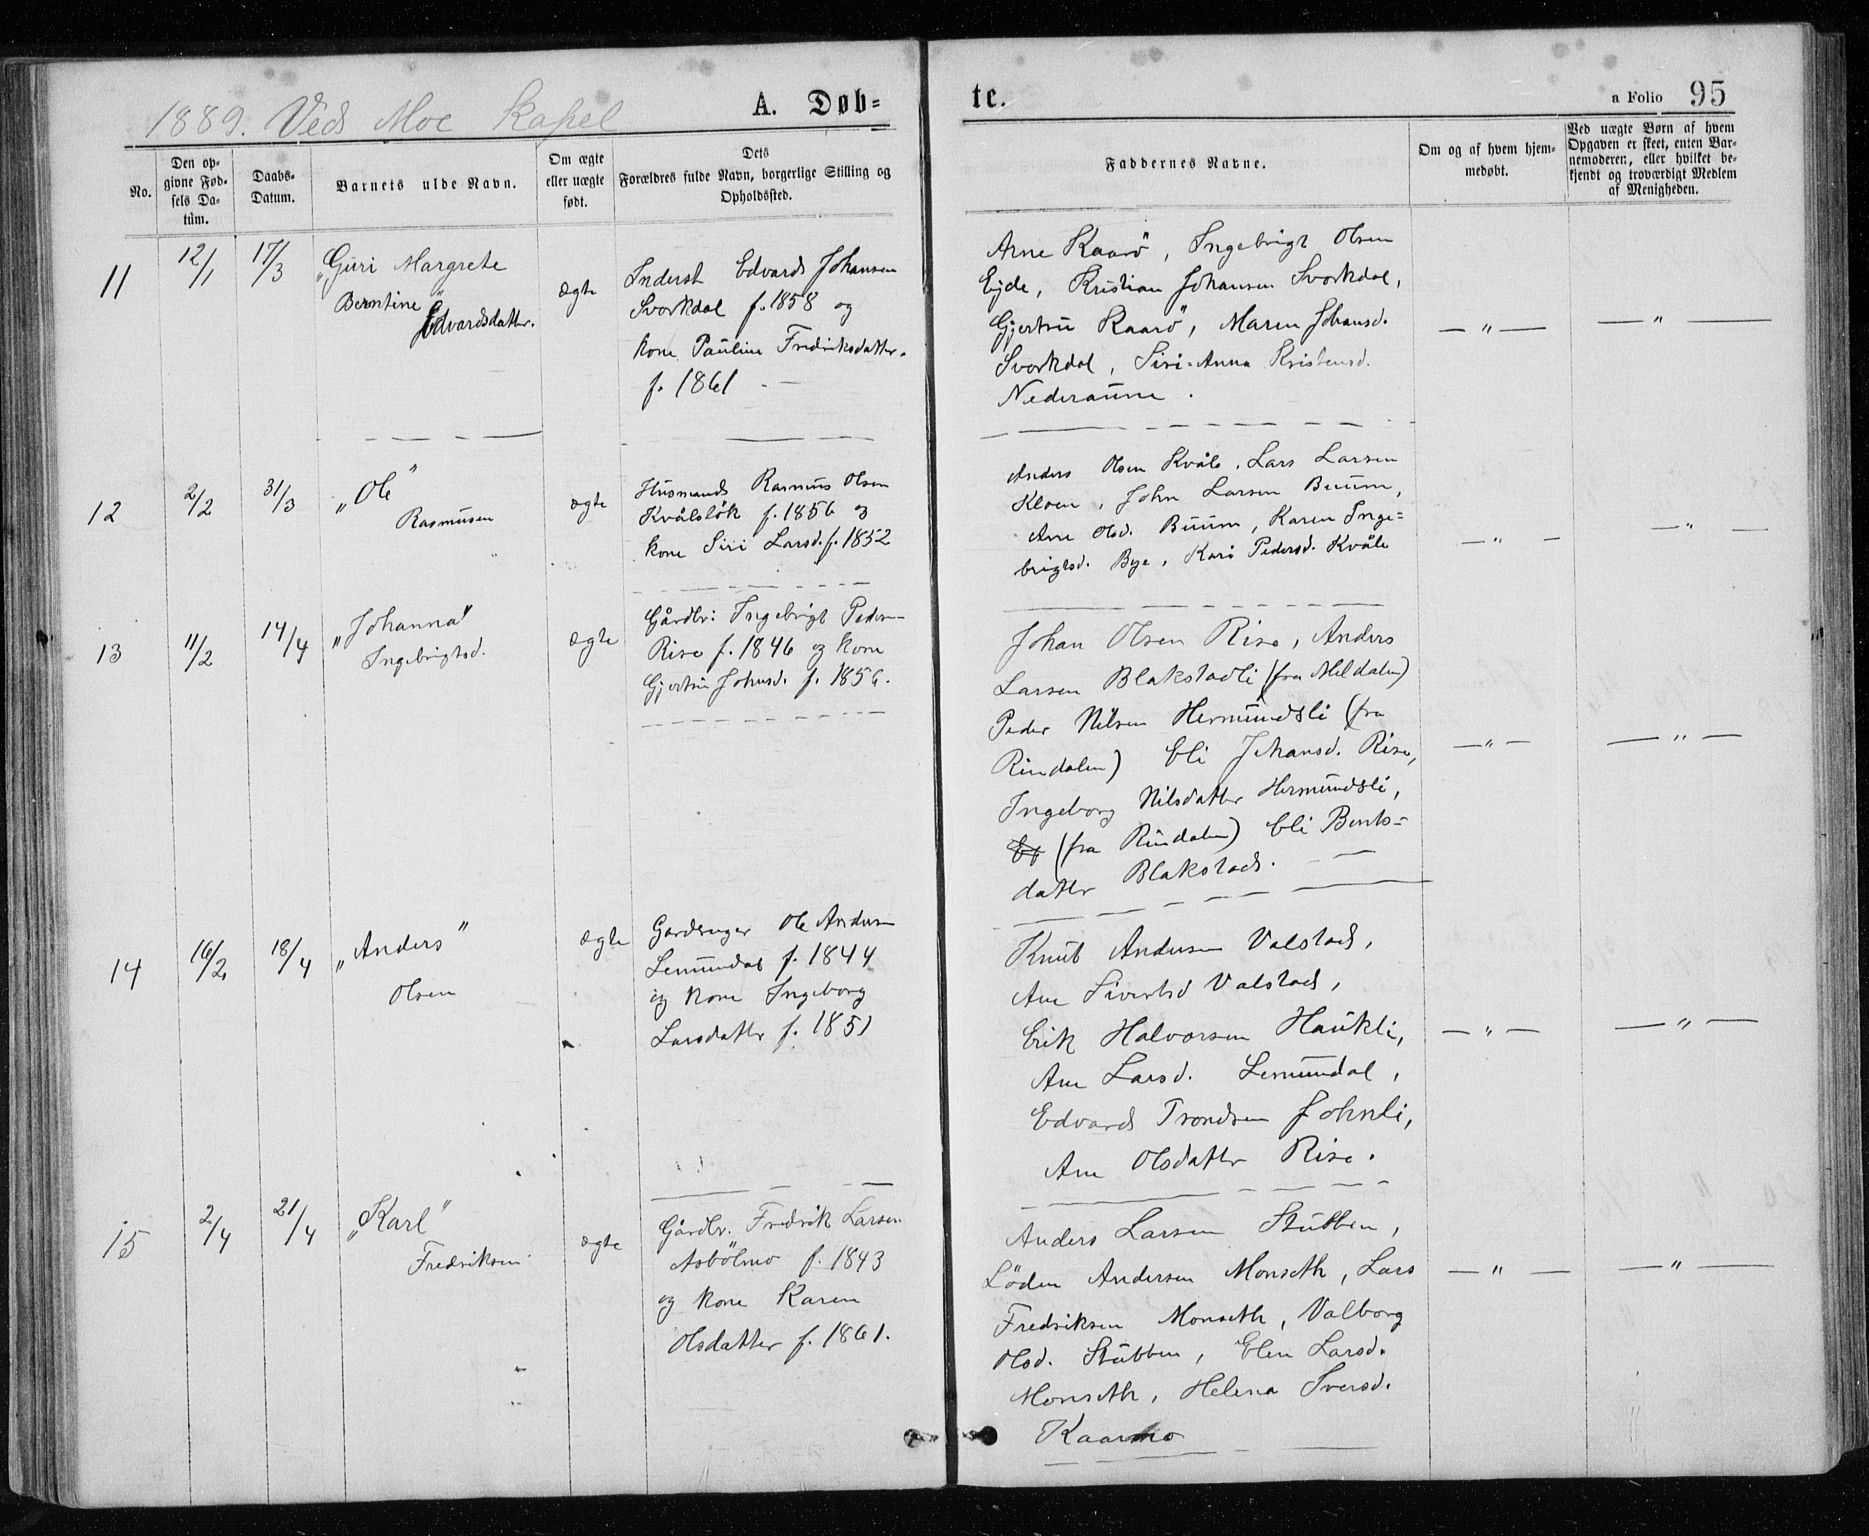 1889. Veds Moe Kapel
A. Døb=
te.
a Folio 95
No.
Den op-
givne Fød-
sels Da-
tum.
Daabs-
Datum.
Barnets ulde Navn.
Om ægte
eller uægte
født.
Dets
Forældres fulde Navn, borgerlige Stilling og
Opholdssted.
Faddernes Navne.
Om og af hvem hjem-
medøbt.
Ved uægte Børn af hvem
Opgaven er skeet, enten Bar-
nemoderen, eller hvilket be-
kjendt og troværdigt Medlem
af Menigheden.
11
12/1
17/3
„Guri Margrete
Berntine"
Edvardsdatter.
ægte
Inderst Edvard Johansen
Svorkdal f. 1858 og
kone Pauline Fredriksdatter.
f. 1861 –
Arne Kaarö, Ingebrigt Olsen
Eyde, Kristian Johansen Svorkdal,
Gjertru Kaarö, Maren Johansd.
Svorkdal, Siri-Anna Kristensd.
Nederaune.
— " —
— " —
12
2/2
31/3
„Ole"
Rasmusen
ægte
Husmand Rasmus Olsen
Kvålslök f. 1856 og
kone Siri Larsd. f. 1852
Anders Olsen Kvåle, Lars Larsen
Kloen, John Larsen Buum,
Ane Olsd. Buum, Karen Inge=
brigtsd. Bye, Kari Pedersd. Kvåle
— " —
— " —
13
11/2
14/4
„Johanna"
Ingebrigtsd.
ægte
Gårdbr: Ingebrigt Pedersen
Rise f. 1846 og kone
Gjertru Johnsd. f. 1856.
Johan Olsen Rise, Anders
Larsen Blakstadli (fra Meldalen)
Peder Nilsen Hermundsli (fra
Rindalen) Eli Johansd. Rise,
Ingeborg Nilsdatter Hermundsli,
(fra Rindalen) Eli Bents=
datter Blakstad.
— " —
— " —
14
16/2
18/4
„Anders"
Olsen
ægte
Gardbruger Ole Andersen
Lemundal f. 1844
og kone Ingeborg
Larsdatter f. 1851
Knut Andersen Valstad,
Ane Sivertsd Valstad,
Erik Halvorsen Haukli,
Ane Larsd. Lemundal,
Edvard Trondsen Johnli,
Ane Olsdatter Rise.
— " —
— " —
15
2/4
21/4
„Karl"
Fredriksen
ægte
Gårdbr. Fredrik Larsen
Asbölmo f. 1843
og kone Karen
Olsdatter f. 1861.
Anders Larsen Stubben,
Löden Andersen Monseth, Lars
Fredriksen Monseth, Valborg
Olsd. Stubben, Elen Larsd.
Monseth, Helena Sversd.
Kaarmo
— " —
— " —